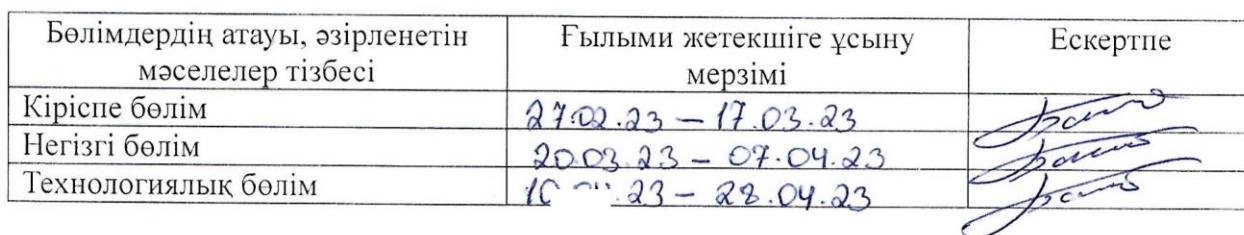 Бөлімдердің атауы, әзірленетін мәселелер тізбесі
Ғылыми жетекшіге ұсыну мерзімі
Ескертпе
Кіріспе бөлім
27.02.23 – 17.03.23
Негізгі бөлім
20.03.23 – 07.04.23
Технологиялық бөлім
.23 – 28.04.23